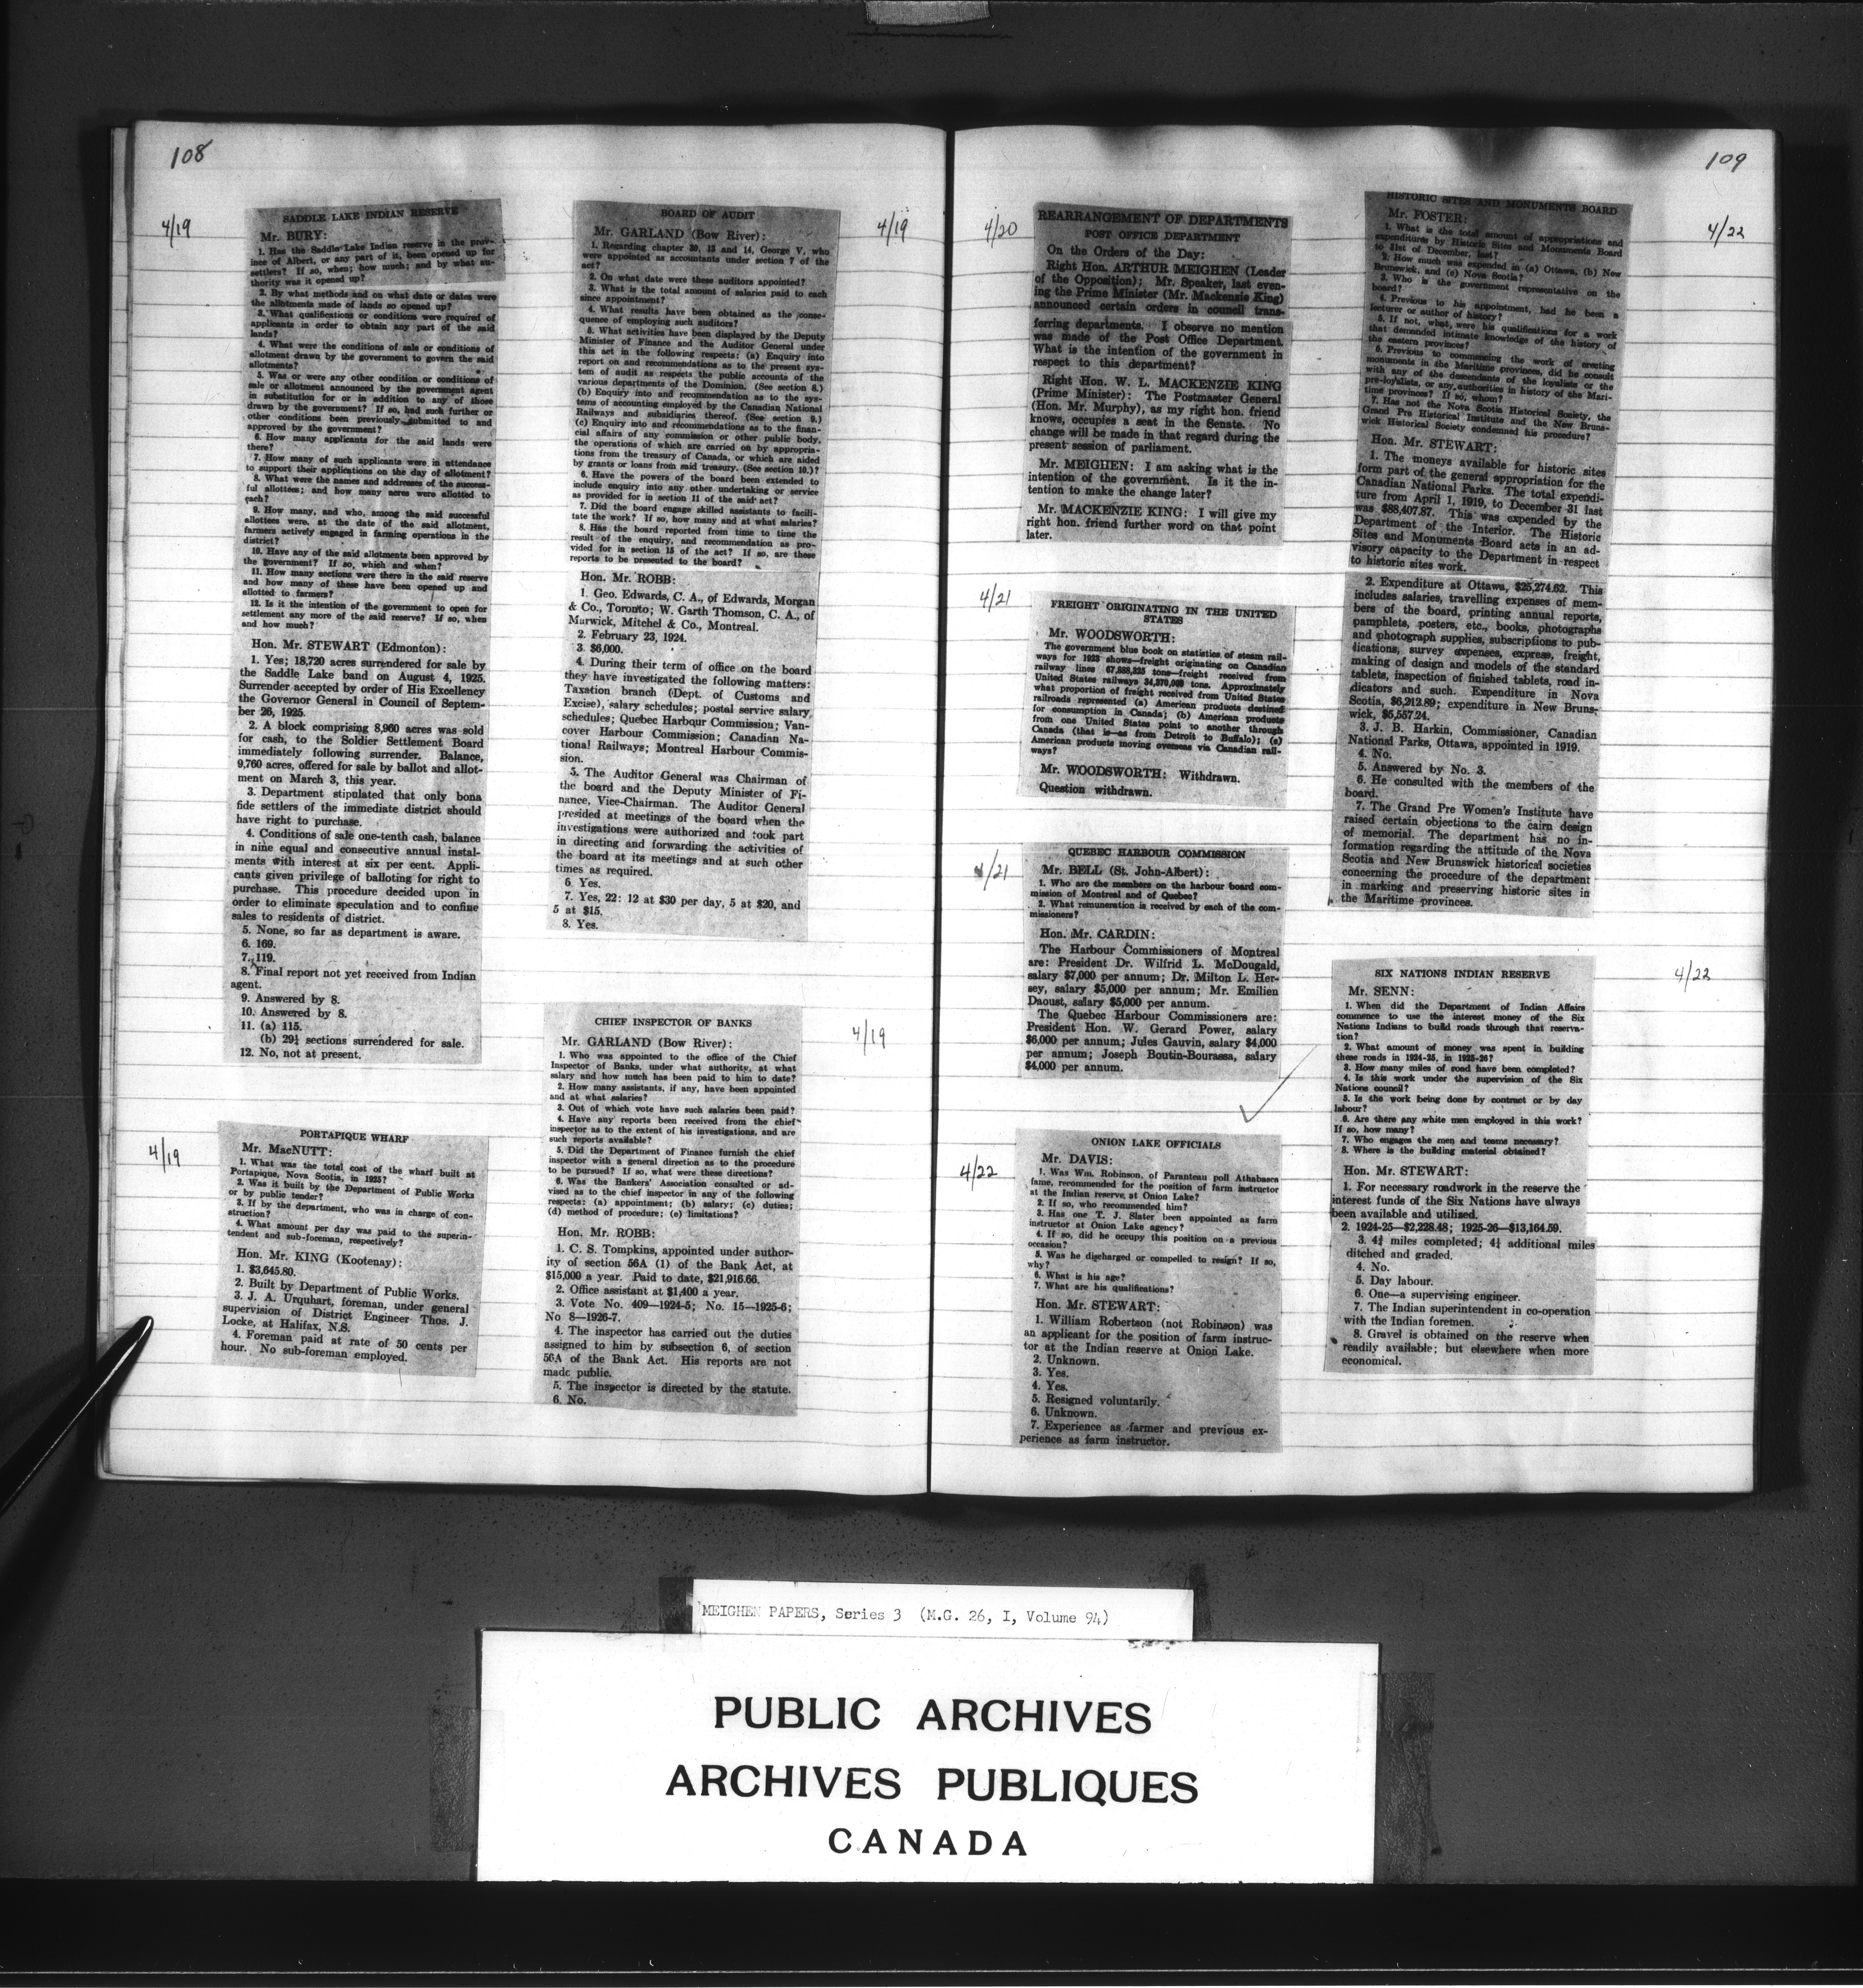 108
4/19
SADDLE LAKE INDIAN RESERVE
Mr. BURY:
1. Has the Saddle Lake Indian reserve in the prov-
ince of Albert, or any part of it, been opened up for
settlers? If so, when; how much; and by what au-
thority was it opened up?
2. By what methods and on what date or dates were
the allotments made of lands so opened up?
3. What qualifications or conditions were required of
applicants in order to obtain any part of the said
lands?
4. What were the conditions of sale or conditions of
allotment drawn by the government to govern the said
allotments?
5. Was or were any other condition or conditions of
sale or allotment announced by the government agent
in substitution for or in addition to any of those
drawn by the government? If so, had such further or
other conditions been previously submitted to and
approved by the government?
6. How many applicants for the said lands were
there?
7. How many of such applicants were in attendance
to support their applications on the day of allotment?
8. What were the names and addresses of the success-
ful allottees; and how many acres were allotted to
each?
9. How many, and who, among the said successful
allottees were, at the date of the said allotment,
farmers actively engaged in farming operations in the
district?
10. Have any of the said allotments been approved by
the government? If so, which and when?
11. How many sections were there in the said reserve
and how many of these have been opened up and
allotted to farmers?
12. Is it the intention of the government to open for
settlement any more of the said reserve? If so, when
and how much?
Hon. Mr. STEWART (Edmonton):
1. Yes; 18,720 acres surrendered for sale by
the Saddle Lake band on August 4, 1925.
Surrender accepted by order of His Excellency
the Governor General in Council of Septem-
ber 26, 1925.
2. A block comprising 8,960 acres was sold
for cash, to the Soldier Settlement Board
immediately following surrender. Balance,
9,760 acres, offered for sale by ballot and allot-
ment on March 3, this year.
3. Department stipulated that only bona
fide settlers of the immediate district should
have right to purchase.
4. Conditions of sale one-tenth cash, balance
in nine equal and consecutive annual instal-
ments with interest at six per cent. Appli-
cants given privilege of balloting for right to
purchase. This procedure decided upon in
order to eliminate speculation and to confine
sales to residents of district.
5. None, so far as department is aware.
6. 169.
7. 119.
8. Final report not yet received from Indian
agent.
9. Answered by 8.
10. Answered by 8.
11. (a) 115.
(b) 29¼ sections surrendered for sale.
12. No, not at present.
4/19
PORTAPIQUE WHARF
Mr. MacNUTT:
1. What was the total cost of the wharf built at
Portapique, Nova Scotia, in 1925?
2. Was it built by the Department of Public Works
or by public tender?
3. If by the department, who was in charge of con-
struction?
4. What amount per day was paid to the superin-
tendent and sub-foreman, respectively?
Hon. Mr. KING (Kootenay):
1. $3,645.80.
2. Built by Department of Public Works.
3. J. A. Urquhart, foreman, under general
supervision of District Engineer Thos. J.
Locke, at Halifax, N.S.
4. Foreman paid at rate of 50 cents per
hour. No sub-foreman employed.
4/19
BOARD OF AUDIT
Mr. GARLAND (Bow River):
1. Regarding chapter 30, 13 and 14, George V, who
were appointed as accountants under section 7 of the
act?
2. On what date were these auditors appointed?
3. What is the total amount of salaries paid to each
since appointment?
4. What results have been obtained as the conse-
quence of employing such auditors?
5. What activities have been displayed by the Deputy
Minister of Finance and the Auditor General under
this act in the following respects: (a) Enquiry into
report on and recommendations as to the present sys-
tem of audit as respects the public accounts of the
various departments of the Dominion. (See section 8.)
(b) Enquiry into and recommendation as to the sys-
tems of accounting employed by the Canadian National
Railways and subsidiaries thereof. (See section 9.)
(c) Enquiry into and recommendations as to the finan-
cial affairs of any commission or other public body,
the operations of which are carried on by appropria-
tions from the treasury of Canada, or which are aided
by grants or loans from said treasury. (See section 10.)?
6. Have the powers of the board been extended to
include enquiry into any other undertaking or service
as provided for in section 11 of the said act?
7. Did the board engage skilled assistants to facili-
tate the work? If so, how many and at what salaries?
8. Has the board reported from time to time the
result of the enquiry, and recommendation as pro-
vided for in section 15 of the act? If so, are these
reports to be presented to the board?
Hon. Mr. ROBB:
1. Geo. Edwards, C. A., of Edwards, Morgan
& Co., Toronto; W. Garth Thomson, C. A., of
Marwick, Mitchel & Co., Montreal.
2. February 23, 1924.
3. $6,000.
4. During their term of office on the board
they have investigated the following matters:
Taxation branch (Dept. of Customs and
Excise), salary schedules; postal service salary
schedules; Quebec Harbour Commission; Van-
cover Harbour Commission; Canadian Na-
tional Railways; Montreal Harbour Commis-
sion.
5. The Auditor General was Chairman of
the board and the Deputy Minister of Fi-
nance, Vice-Chairman. The Auditor General
presided at meetings of the board when the
investigations were authorized and took part
in directing and forwarding the activities of
the board at its meetings and at such other
times as required.
6. Yes.
7. Yes, 22: 12 at $30 per day, 5 at $20, and
5 at $15.
8. Yes.
4/19
CHIEF INSPECTOR OF BANKS
Mr. GARLAND (Bow River):
1. Who was appointed to the office of the Chief
Inspector of Banks, under what authority, at what
salary and how much has been paid to him to date?
2. How many assistants, if any, have been appointed
and at what salaries?
3. Out of which vote have such salaries been paid?
4. Have any reports been received from the chief
inspector as to the extent of his investigations, and are
such reports available?
5. Did the Department of Finance furnish the chief
inspector with a general direction as to the procedure
to be pursued? If so, what were these directions?
6. Was the Bankers' Association consulted or ad-
vised as to the chief inspector in any of the following
respects: (a) appointment; (b) salary; (c) duties;
(d) method of procedure; (e) limitations?
Hon. Mr. ROBB:
1. C. S. Tompkins, appointed under author-
ity of section 56A (1) of the Bank Act, at
$15,000 a year. Paid to date, $21,916.66.
2. Office assistant at $1,400 a year.
3. Vote No. 409—1924-5; No. 15—1925-6;
No 8—1926-7.
4. The inspector has carried out the duties
assigned to him by subsection 6, of section
56A of the Bank Act. His reports are not
made public.
5. The inspector is directed by the statute.
6. No.
109
4/20
REARRANGEMENT OF DEPARTMENTS
POST OFFICE DEPARTMENT
On the Orders of the Day:
Right Hon. ARTHUR MEIGHEN (Leader
of the Opposition): Mr. Speaker, last even-
ing the Prime Minister (Mr. Mackenzie King)
announced certain orders in council trans-
ferring departments. I observe no mention
was made of the Post Office Department.
What is the intention of the government in
respect to this department?
Right Hon. W. L. MACKENZIE KING
(Prime Minister): The Postmaster General
(Hon. Mr. Murphy), as my right hon. friend
knows, occupies a seat in the Senate. No
change will be made in that regard during the
present session of parliament.
Mr. MEIGHEN: I am asking what is the
intention of the government. Is it the in-
tention to make the change later?
Mr. MACKENZIE KING: I will give my
right hon. friend further word on that point
later.
4/21
FREIGHT ORIGINATING IN THE UNITED
STATES
Mr. WOODSWORTH:
The government blue book on statistics of steam rail-
ways for 1923 shows—freight originating on Canadian
railway lines tons—freight received from
United States railways tons. Approximately
what proportion of freight received from United States
railroads represented (a) American products destined
for consumption in Canada; (b) American products
from one United States point to another through
Canada (that is—as from Detroit to Buffalo); (c)
American products moving overseas via Canadian rail-
ways?
Mr. WOODSWORTH: Withdrawn.
Question withdrawn.
4/21
QUEBEC HARBOUR COMMISSION
Mr. BELL (St. John-Albert):
1. Who are the members on the harbour board com-
mission of Montreal and of Quebec?
2. What remuneration is received by each of the com-
missioners?
Hon. Mr. CARDIN:
The Harbour Commissioners of Montreal
are: President Dr. Wilfrid L. McDougald,
salary $7,000 per annum; Dr. Milton L. Her-
sey, salary $5,000 per annum; Mr. Emilien
Daoust, salary $5,000 per annum.
The Quebec Harbour Commissioners are:
President Hon. W. Gerard Power, salary
$6,000 per annum; Jules Gauvin, salary $4,000
per annum; Joseph Boutin-Bourassa, salary
$4,000 per annum.
4/22
ONION LAKE OFFICIALS
Mr. DAVIS:
1. Was Wm. Robinson, of Paranteau poll Athabasca
fame, recommended for the position of farm instructor
at the Indian reserve, at Onion Lake?
2. If so, who recommended him?
3. Has one T. J. Slater been appointed as farm
instructor at Onion Lake agency?
4. If so, did he occupy this position on a previous
occasion?
5. Was he discharged or compelled to resign? If so,
why?
6. What is his age?
7. What are his qualifications?
Hon. Mr. STEWART:
1. William Robertson (not Robinson) was
an applicant for the position of farm instruc-
tor at the Indian reserve at Onion Lake.
2. Unknown.
3. Yes.
4. Yes.
5. Resigned voluntarily.
6. Unknown.
7. Experience as farmer and previous ex-
perience as farm instructor.
4/22
HISTORIC SITES AND MONUMENTS BOARD
Mr. FOSTER:
1. What is the total amount of appropriations and
expenditures by Historic Sites and Monuments Board
to 31st of December, last?
2. How much was expended in (a) Ottawa, (b) New
Brunswick, and (c) Nova Scotia?
3. Who is the government representative on the
board?
4. Previous to his appointment, had he been a
lecturer or author of history?
5. If not, what were his qualifications for a work
that demanded intimate knowledge of the history of
the eastern provinces?
6. Previous to commencing the work of erecting
monuments in the Maritime provinces, did he consult
with any of the descendants of the loyalists or the
pre-loyalists, or any authorities in history of the Mari-
time provinces? If so, whom?
7. Has not the Nova Scotia Historical Society, the
Grand Pre Historical Institute and the New Bruns-
wick Historical Society condemned his procedure?
Hon. Mr. STEWART:
1. The moneys available for historic sites
form part of the general appropriation for the
Canadian National Parks. The total expendi-
ture from April 1, 1919, to December 31 last
was $88,407.87. This was expended by the
Department of the Interior. The Historic
Sites and Monuments Board acts in an ad-
visory capacity to the Department in respect
to historic sites work.
2. Expenditure at Ottawa, $25,274.62. This
includes salaries, travelling expenses of mem-
bers of the board, printing annual reports,
pamphlets, posters, etc., books, photographs
and photograph supplies, subscriptions to pub-
lications, survey expenses, express, freight,
making of design and models of the standard
tablets, inspection of finished tablets, road in-
dicators and such. Expenditure in Nova
Scotia, $6,212.89; expenditure in New Bruns-
wick, $5,557.24.
3. J. B. Harkin, Commissioner, Canadian
National Parks, Ottawa, appointed in 1919.
4. No.
5. Answered by No. 3.
6. He consulted with the members of the
board.
7. The Grand Pre Women's Institute have
raised certain objections to the cairn design
of memorial. The department has no in-
formation regarding the attitude of the Nova
Scotia and New Brunswick historical societies
concerning the procedure of the department
in marking and preserving historic sites in
the Maritime provinces.
4/22
SIX NATIONS INDIAN RESERVE
Mr. SENN:
1. When did the Department of Indian Affairs
commence to use the interest money of the Six
Nations Indians to build roads through that reserva-
tion?
2. What amount of money was spent in building
these roads in 1924-25, in 1925-26?
3. How many miles of road have been completed?
4. Is this work under the supervision of the Six
Nations council?
5. Is the work being done by contract or by day
labour?
6. Are there any white men employed in this work?
If so, how many?
7. Who engages the men and teams necessary?
8. Where is the building material obtained?
Hon. Mr. STEWART:
1. For necessary roadwork in the reserve the
interest funds of the Six Nations have always
been available and utilized.
2. 1924-25—$2,228.48; 1925-26—$13,164.59.
3. miles completed; additional miles
ditched and graded.
4. No.
5. Day labour.
6. One—a supervising engineer.
7. The Indian superintendent in co-operation
with the Indian foremen.
8. Gravel is obtained on the reserve when
readily available; but elsewhere when more
economical.
MEIGHEN PAPERS, Series 3 (M.G. 26, I, Volume 94)
PUBLIC ARCHIVES
ARCHIVES PUBLIQUES
CANADA